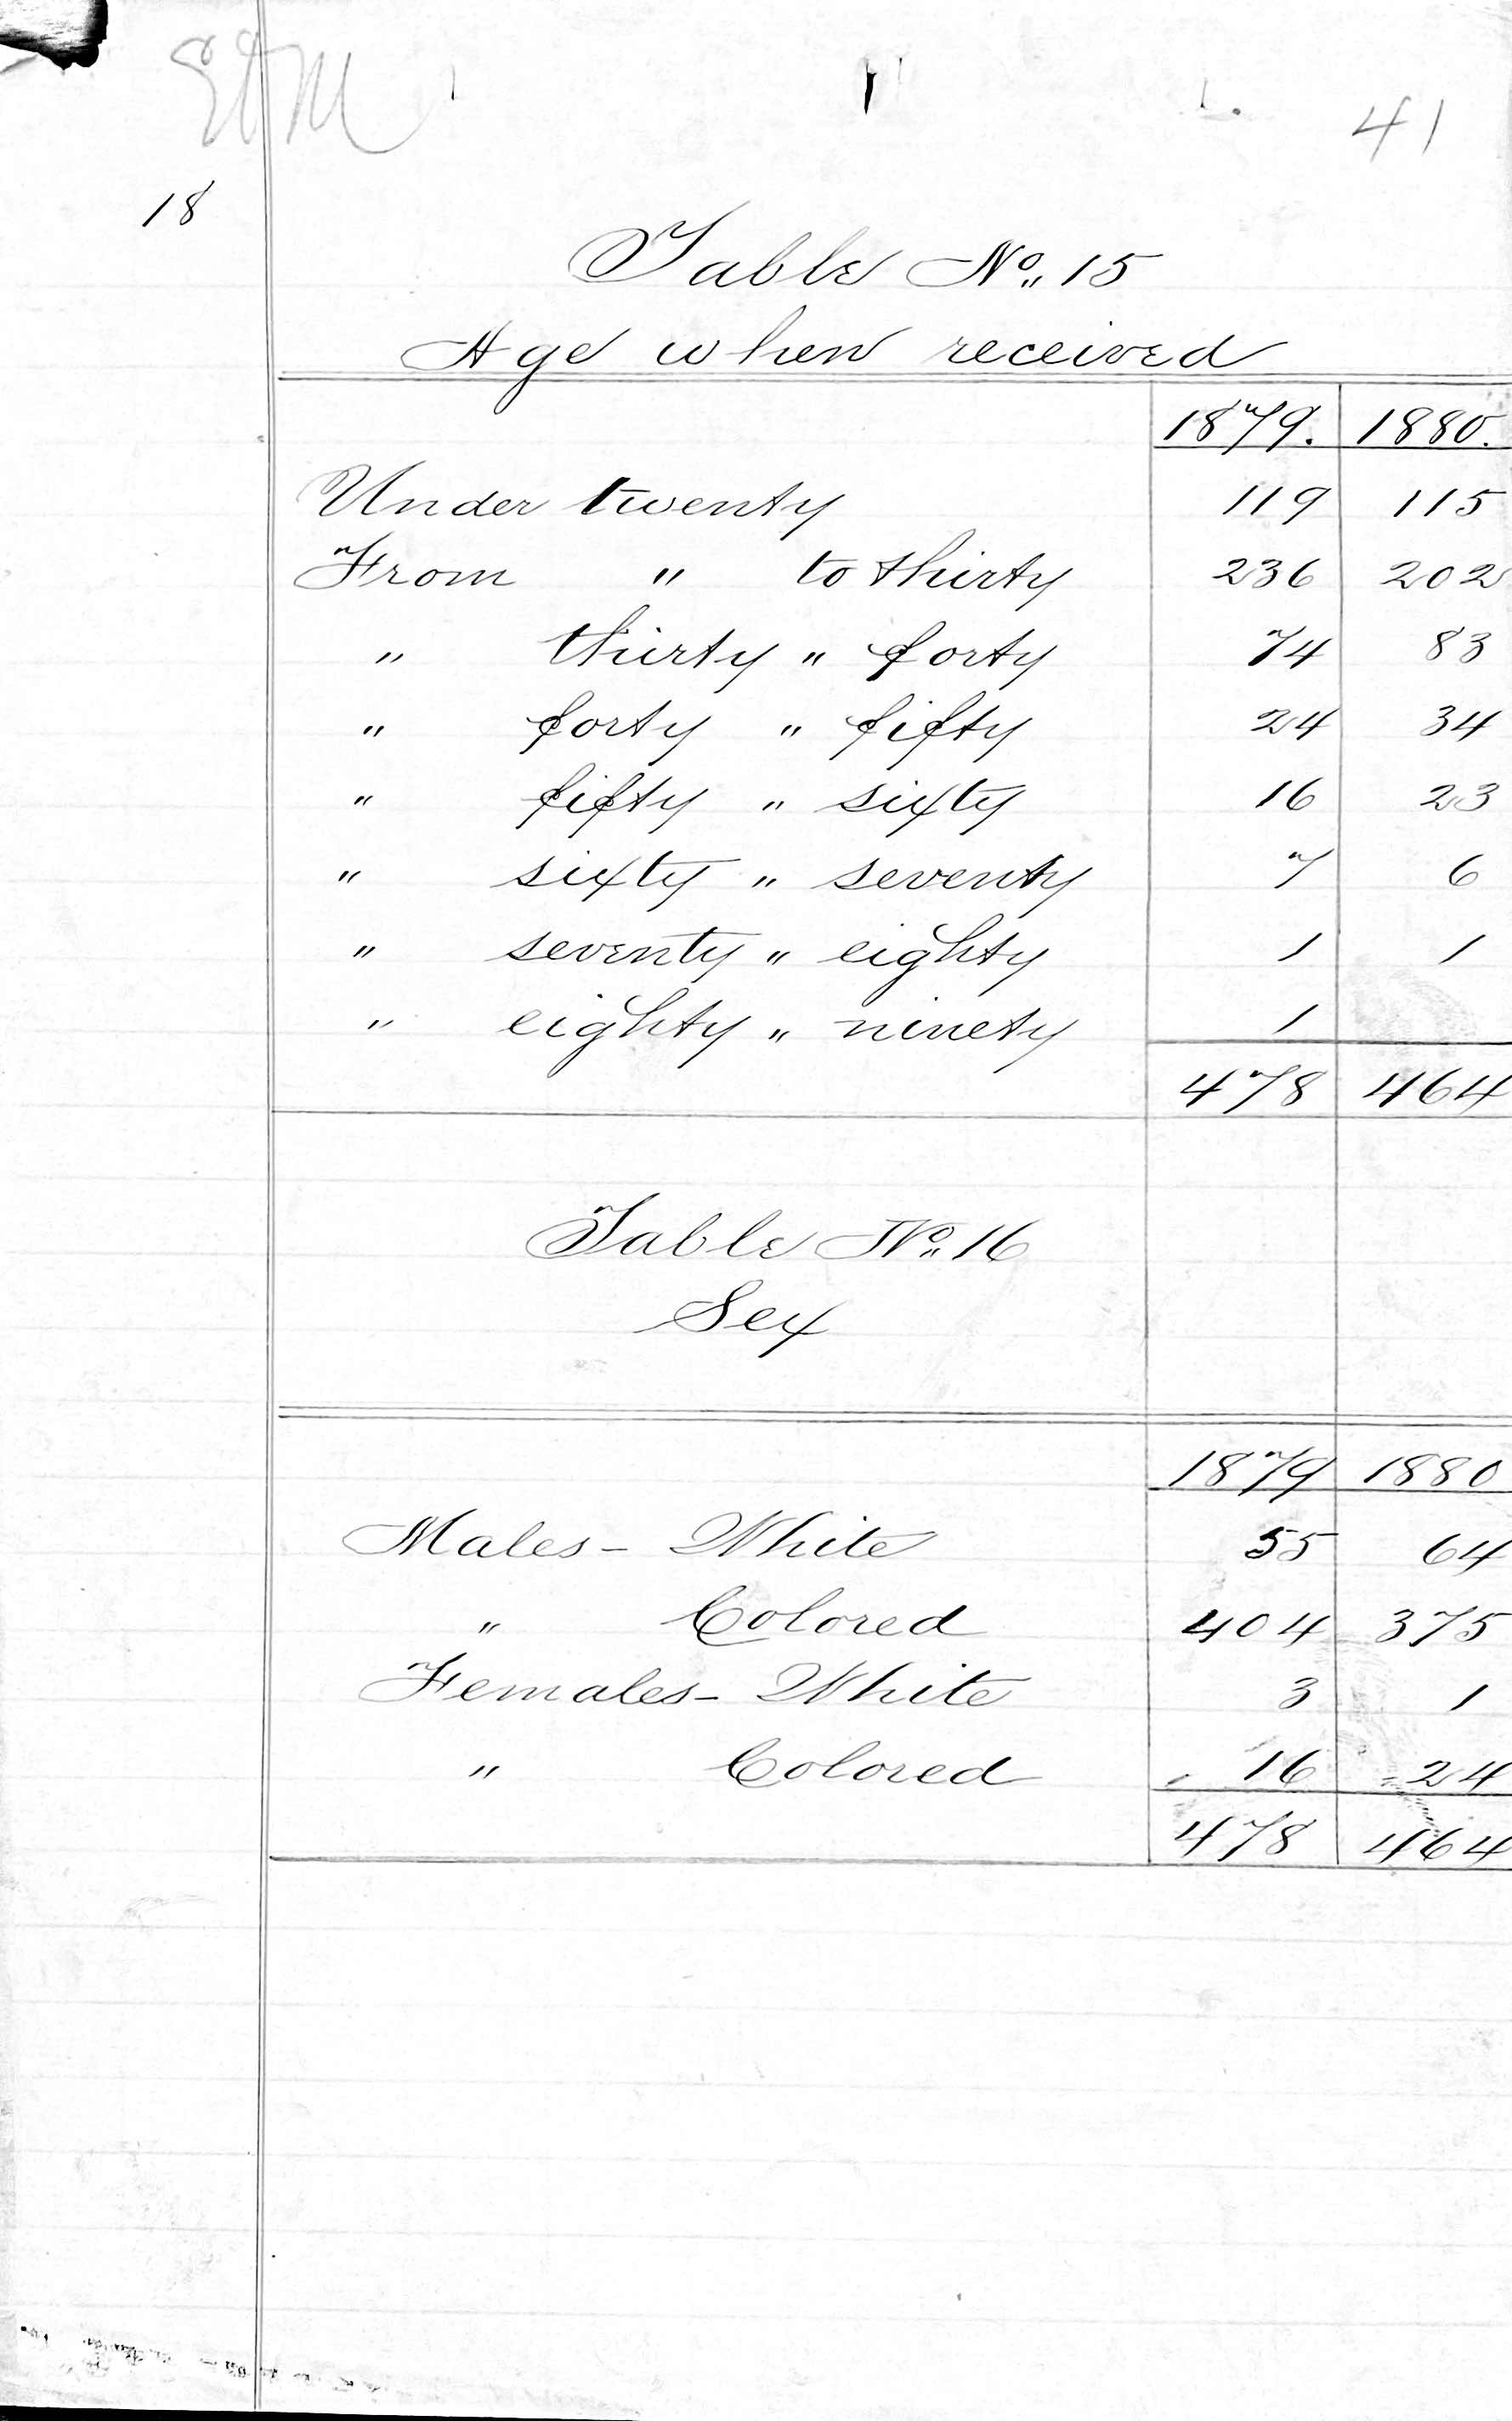 E.D.M 41
18
Table No. 15
Age when received
1879. 1880.
Under twenty 119 115
From " to thirty 236 202
" thirty " forty 74 83
" forty " fifty 24 34
" fifty " sixty 16 23
" sixty " seventy 7 6
" seventy " eighty 1 1
" eighty " ninety 1
478 464
Table No. 16
Sex
1879 1880
Males - White 55 64
" Colored 404 375
Females - White 3 1
" Colored 16 24
478 464